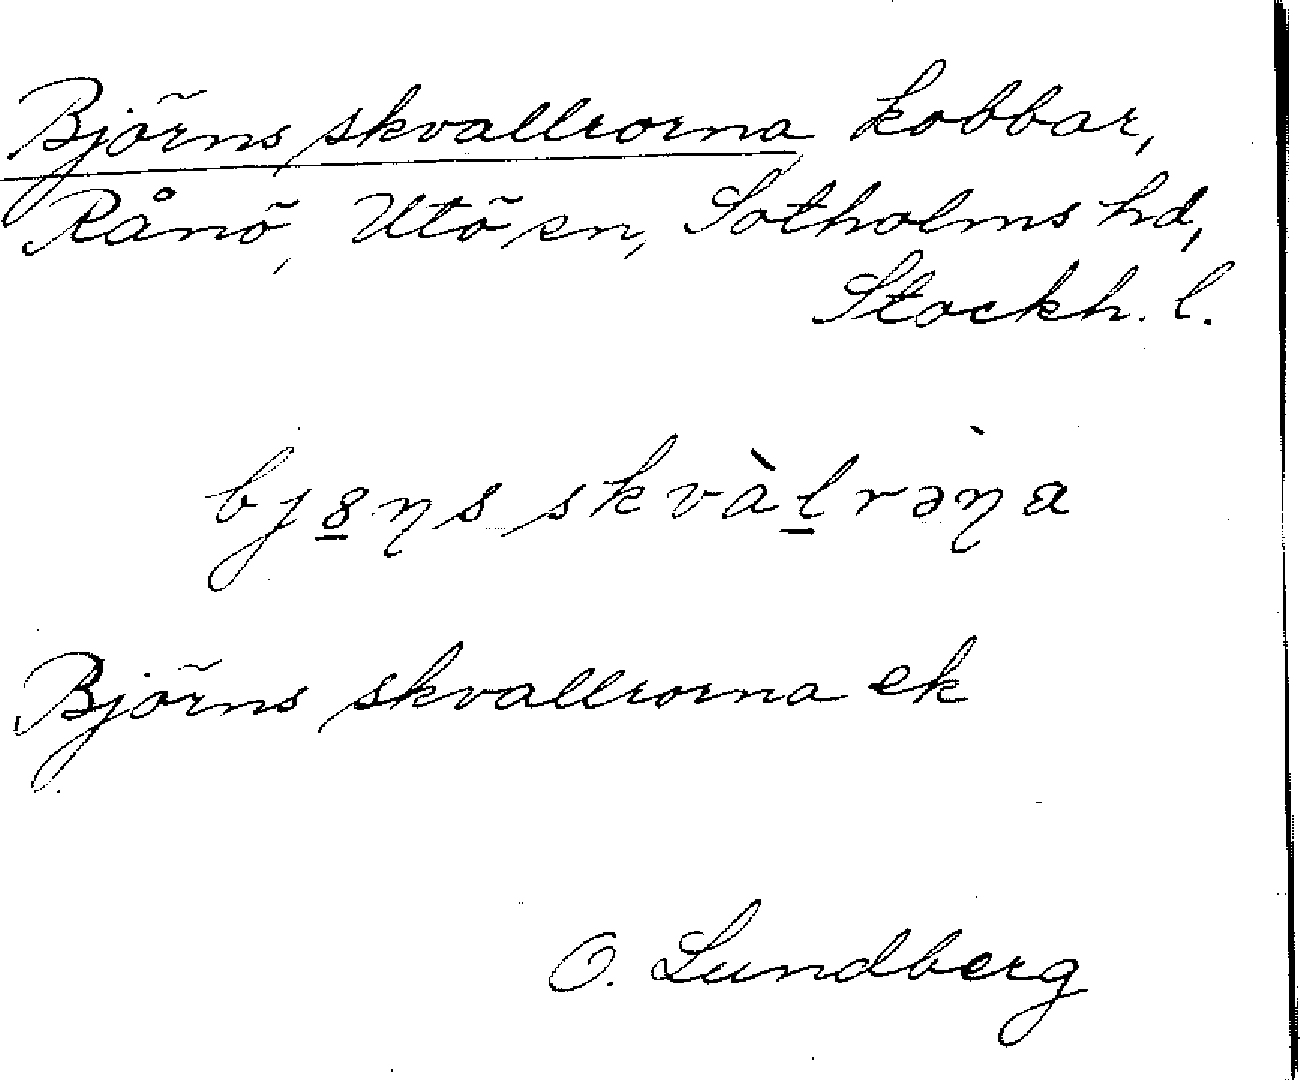 Björns skvallrorna kobbar,
Rånö, Utö sn, Sotholms hd,
Stockh. l.
bjɞ̱ŋs skvàḻrəŋ̀a
Björns skvallrorna ek
O. Lundberg